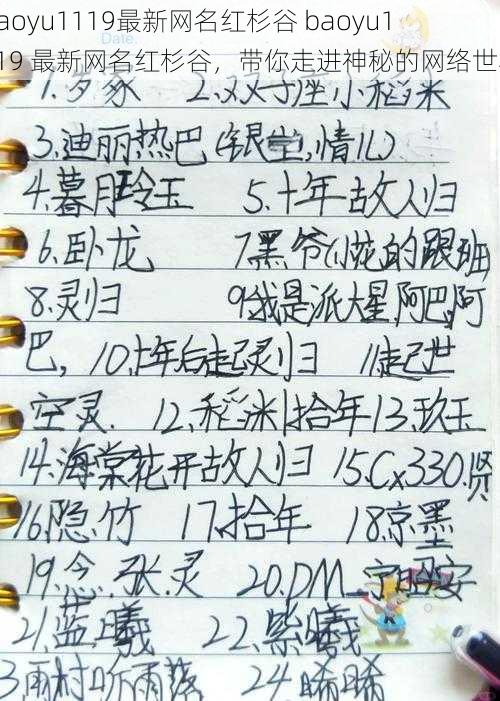 aoyu1119最新网名红杉谷 baoyu1
19 最新网名红杉谷，带你走进神秘的网络世
1.岁家 2.双寸座小稻米
3.迪丽热巴(银堂,情儿)
4.暮月玲玉 5.十年故人归
6.卧龙 7黑爷(小花的跟班
8.灵归 9.我是派大星阿巴,阿
巴, 10.十年后起灵归 11.起世
空灵. 12.稻米|拾年13.玖玉
14.海棠花开故人归 15.Cx330.贤
16.隐.竹 17.拾年 18.京墨
19. 张.灵 20.DM_
21.蓝曦 22.紫曦
3.雨村听雨落 24.晞晞